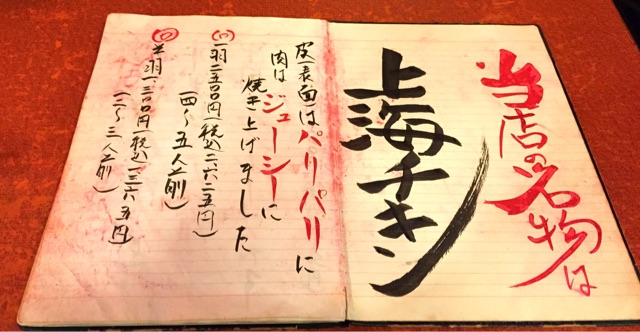 当店の名物は
上海チキン
皮(表面)はパリパリに
肉はジューシーに
焼き上げました
(一)一羽二五〇〇円(税込二、六二五円)
(四〜五人前)
(二)半羽一、三〇〇円(税込一三六五円)
(二〜三人前)